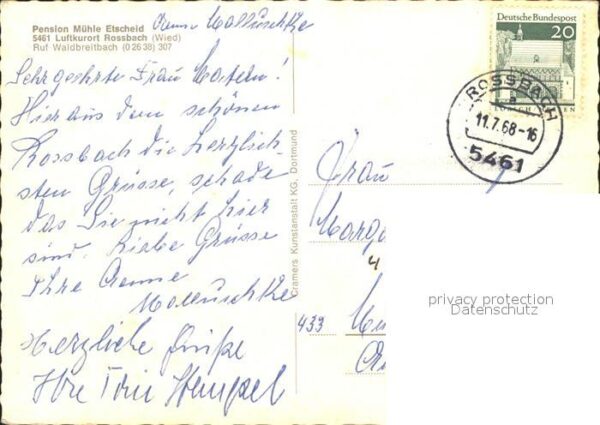 Pension Mühle Etscheid
5461 Luftkurort Rossbach (Wied)
Ruf Waldbreitbach (0 26 38) 307
Sehr geehrte Frau
Hier aus dem schönen
Rossbach die herzlich-
sten Grüsse, schade
das Sie nicht hier
sind. Liebe Grüsse
Ihre
Herzliche Grüße
Ihre Frau Hempel
Cramers Kunstanstalt KG, Dortmund
Deutsche Bundespost
20
LORSCH
ROSSBACH
a
11.7.68-16
5461
Frau
433
privacy protection
Datenschutz